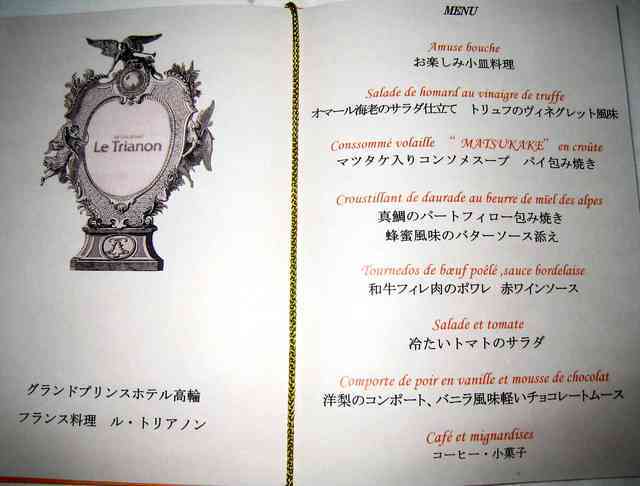 Le Trianon
グランドプリンスホテル高輪
フランス料理　ル・トリアノン
MENU
Amuse bouche
お楽しみ小皿料理
Salade de homard au vinaigre de truffe
オマール海老のサラダ仕立て　トリュフのヴィネグレット風味
Conssommé volaille “ MATSUKAKE” en croûte
マツタケ入りコンソメスープ　パイ包み焼き
Croustillant de daurade au beurre de mïel des alpes
真鯛のパートフィロー包み焼き
蜂蜜風味のバターソース添え
Tournedos de bœuf poêlé ,sauce bordelaise
和牛フィレ肉のポワレ　赤ワインソース
Salade et tomate
冷たいトマトのサラダ
Comporte de poir en vanille et mousse de chocolat
洋梨のコンポート、バニラ風味軽いチョコレートムース
Café et mignardises
コーヒー・小菓子